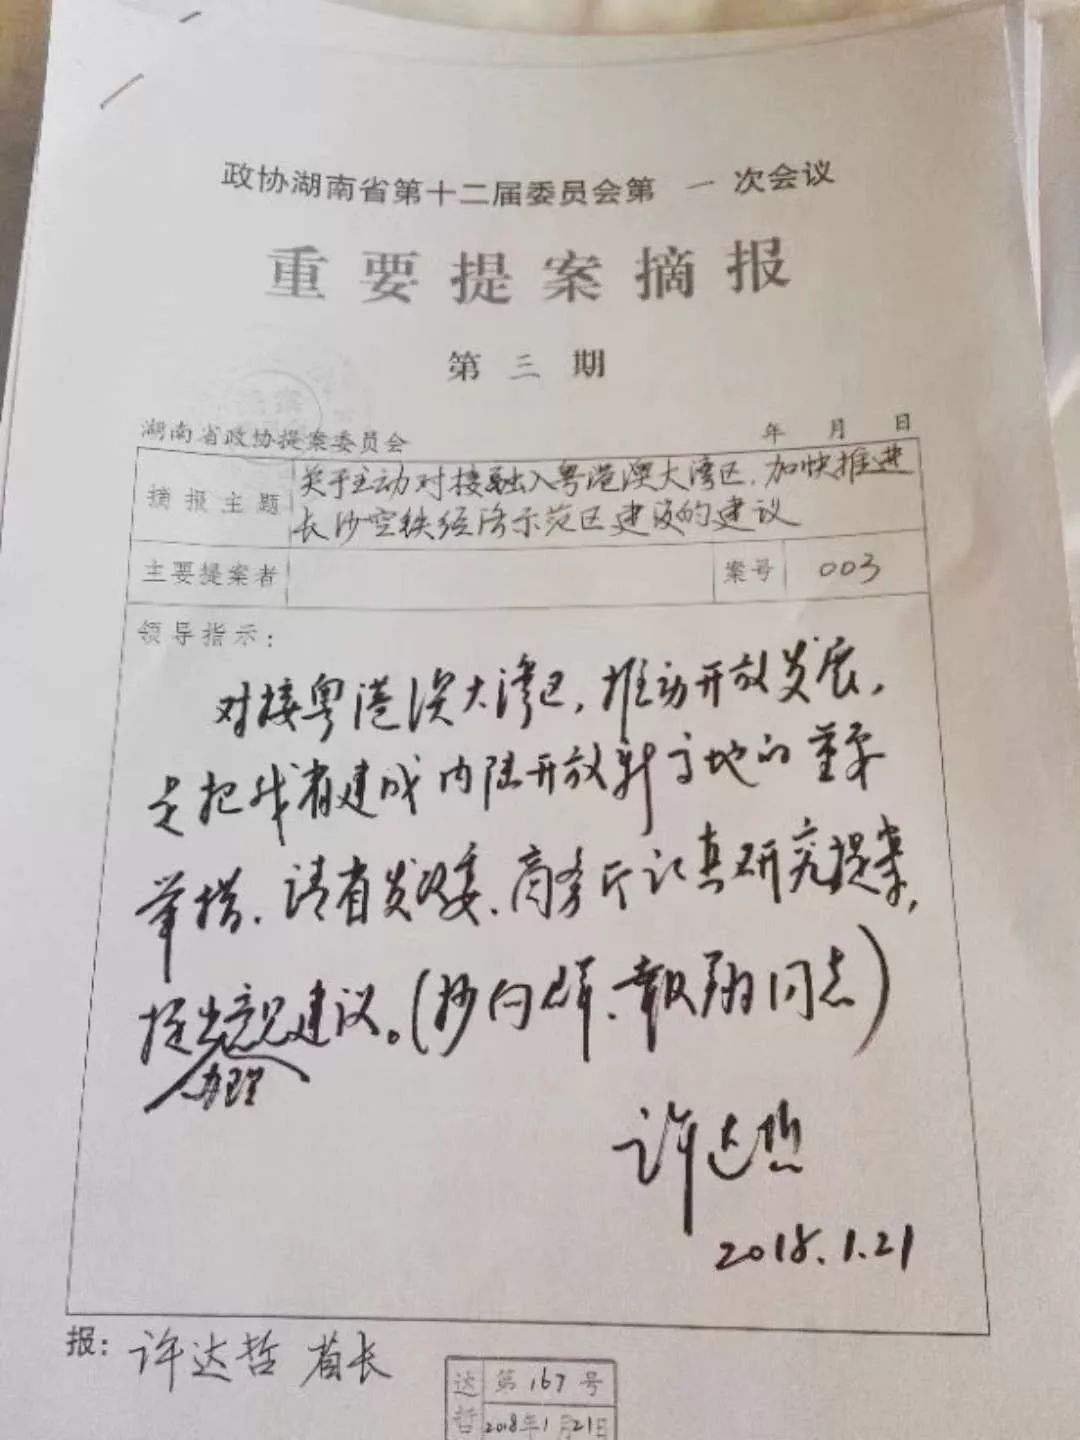 政协湖南省第十二届委员会第 一 次会议
重要提案摘报
第 三 期
湖南省政协提案委员会 年 月 日
摘报主题 关于主动对接融入粤港澳大湾区,加快推进
长沙空铁经济示范区建设的建议
主要提案者 案号 003
领导指示:
对接粤港澳大湾区,推动开放发展,
是把我省建成内陆开放新高地的重要
举措、请省发改委、商务厅认真研究提案,
提出办理意见建议。(抄向群、报翔同志)
许达哲
2018.1.21
报: 许达哲 省长
达哲 第 167 号
2018年1月21日